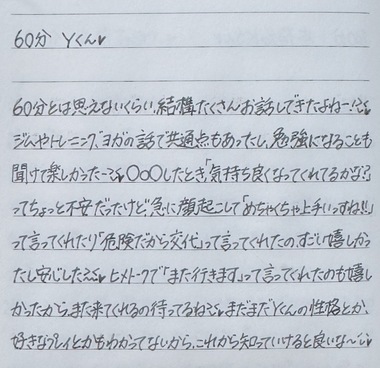 60分 Yくん♥
60分とは思えないくらい、結構たくさんお話しできたよねー!?
ジムやトレーニング、ヨガの話で共通点もあったし、勉強になることも
聞けて楽しかったー♥ ○○○したとき「気持ち良くなってくれてるかな?」
ってちょっと不安だったけど急に顔起こして「めちゃくちゃ上手いっすね!!」
って言ってくれたり「危険だから交代」って言ってくれたの、すごい嬉しかっ
たし安心したえ♥ ヒメトークで「また行きます」って言ってくれたのも嬉し
かったから、また来てくれるの待ってるね♥ まだまだYくんの性格とか、
好きなプレイとかもわかってないから、これから知っていけると良いな〜